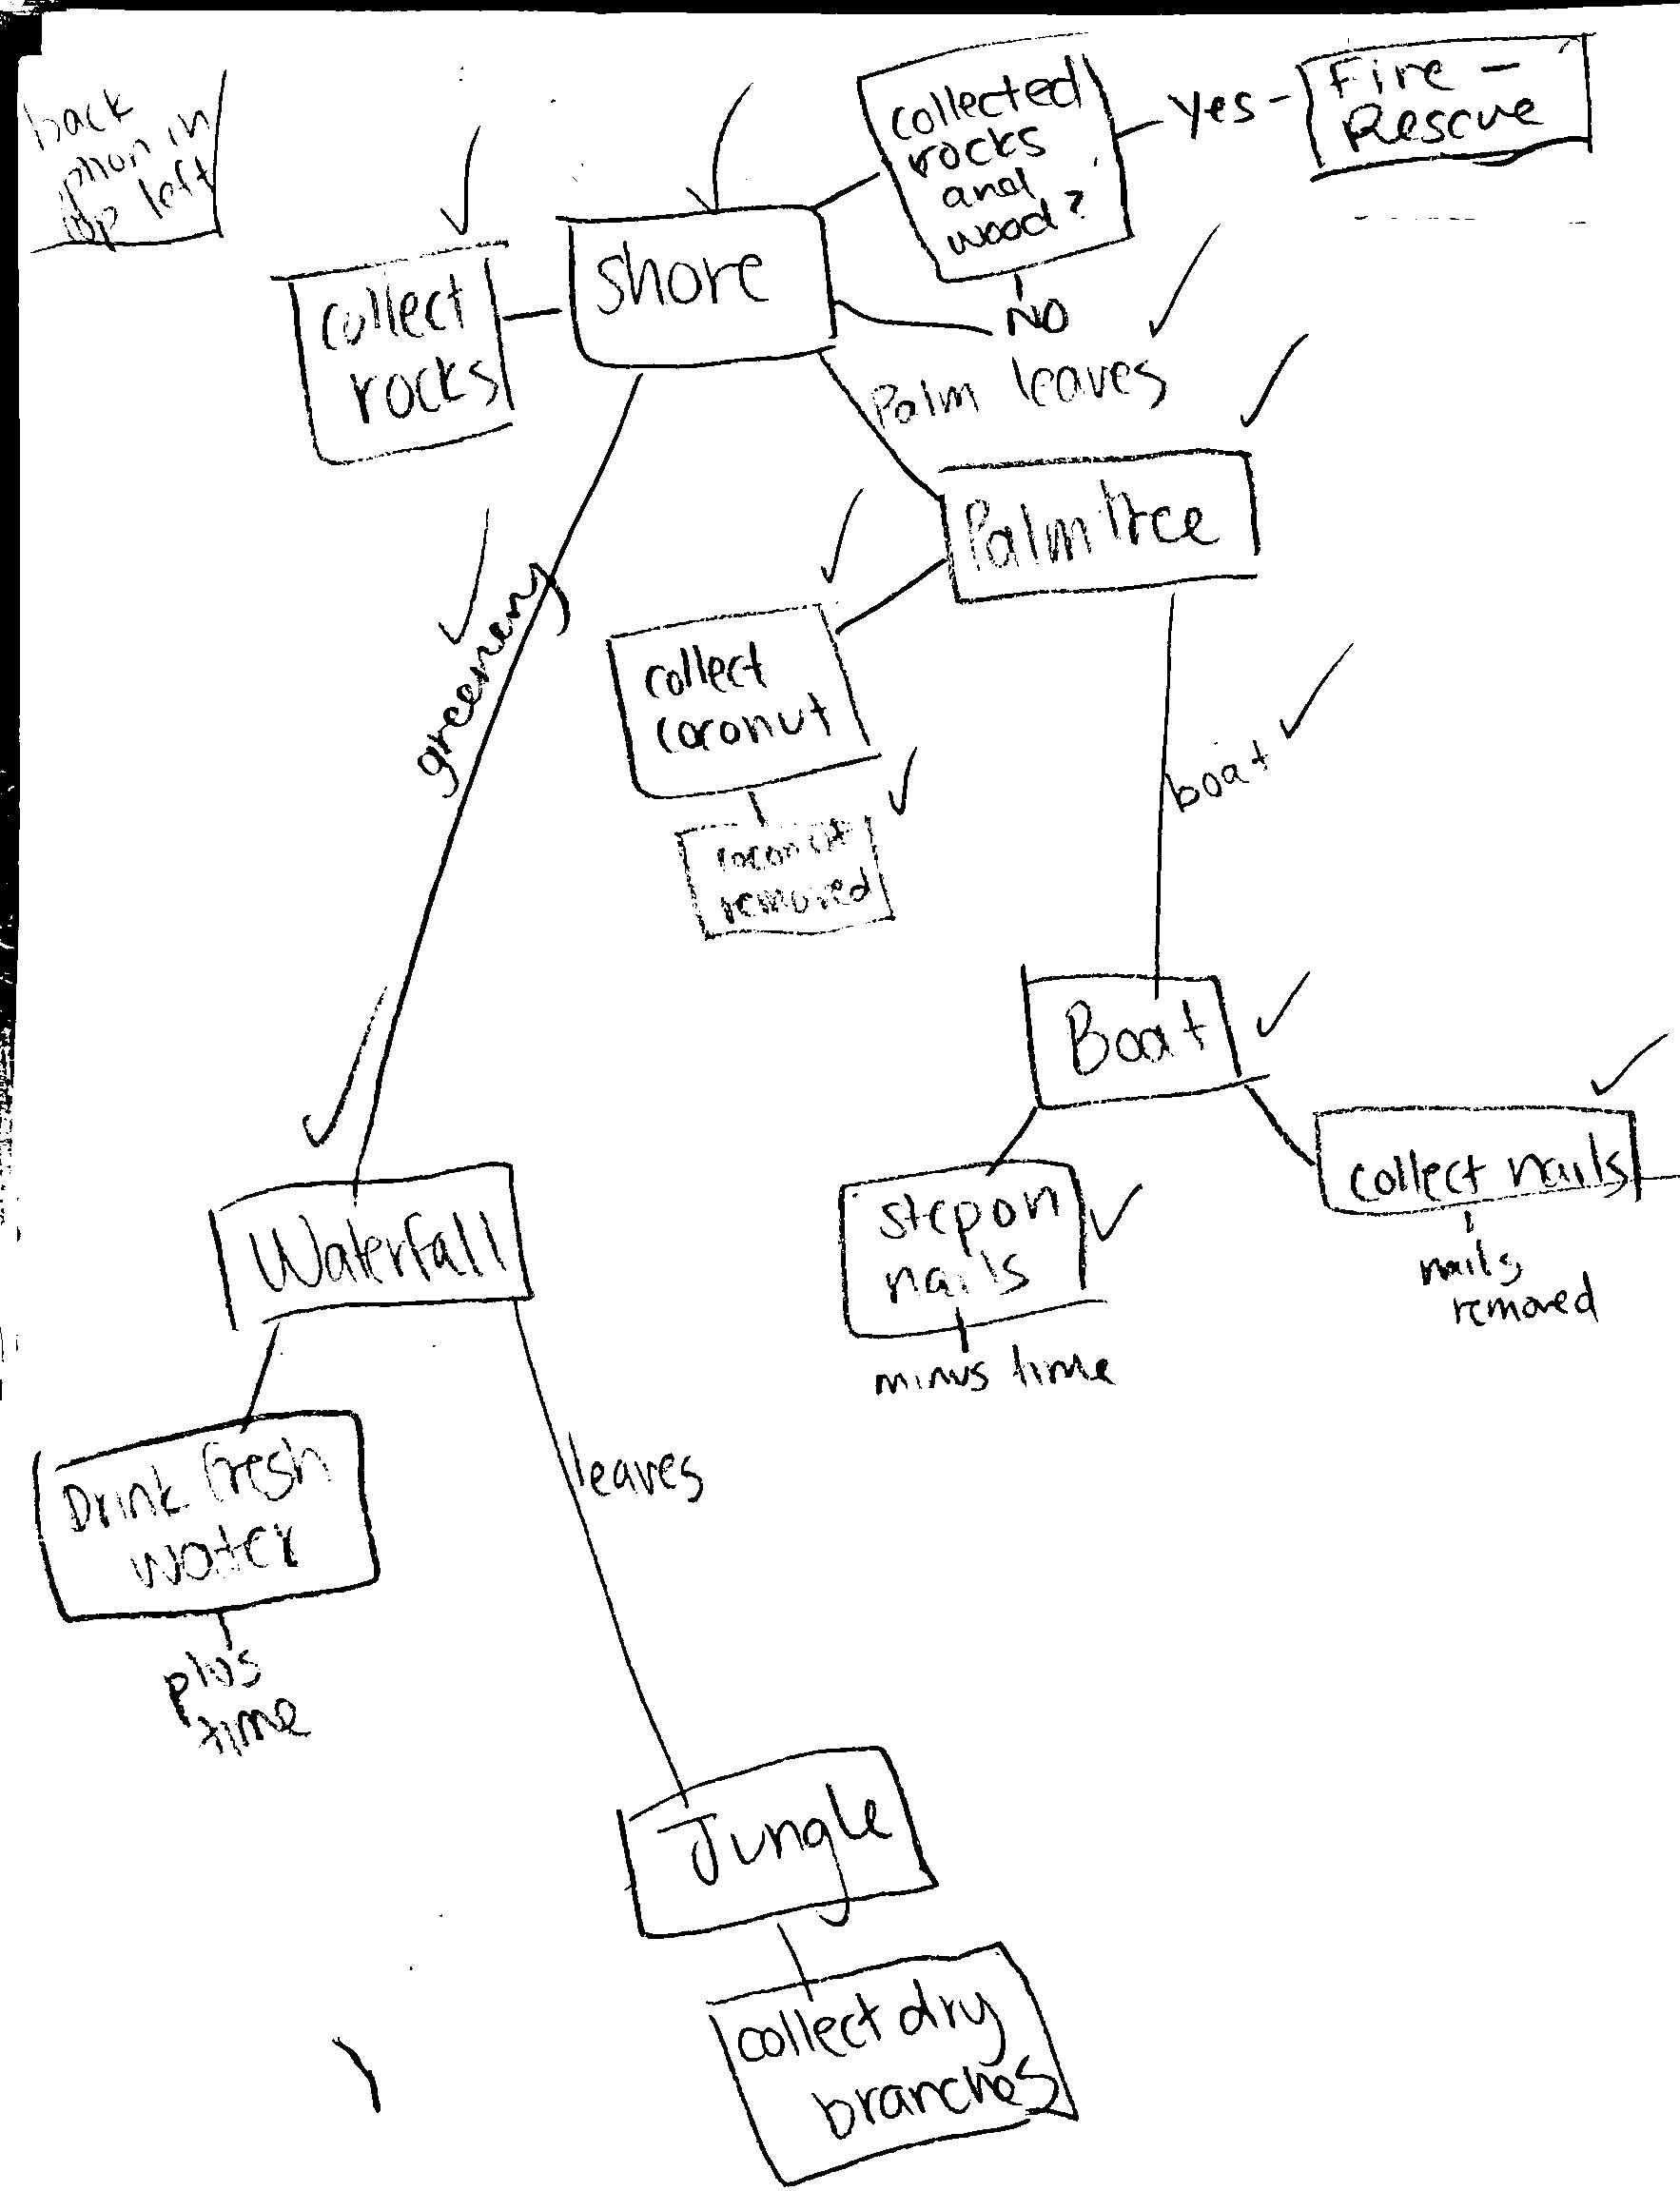 back
in
top left
collected
rocks
and
wood?
yes
Fire -
Rescue
NO
shore
collect
rocks
Palm leaves
Palm tree
greenery
collect
coconut
coconut
removed
boat
Boat
step on
nails
minus time
collect nails
nails
removed
Waterfall
Drink fresh
water
plus
time
leaves
Jungle
collect dry
branches